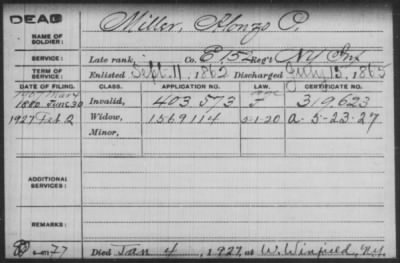 DEAD
Miller, Alonzo P.
NAME OF SOLDIER:
SERVICE: Late rank, Co. E 152 Reg't NY Inf
TERM OF SERVICE: Enlisted Sept. 11, 1862 Discharged July 13, 1865
DATE OF FILING. CLASS. APPLICATION NO. LAW. CERTIFICATE NO.
1880 June 30 Invalid, 403 573 F 319,623
1927 Feb 2 Widow, 1569114 5-1-20 a-5-23-27
Minor,
ADDITIONAL SERVICES:
REMARKS:
Died Jan 4, 1927, at W. Winfield, N.Y.